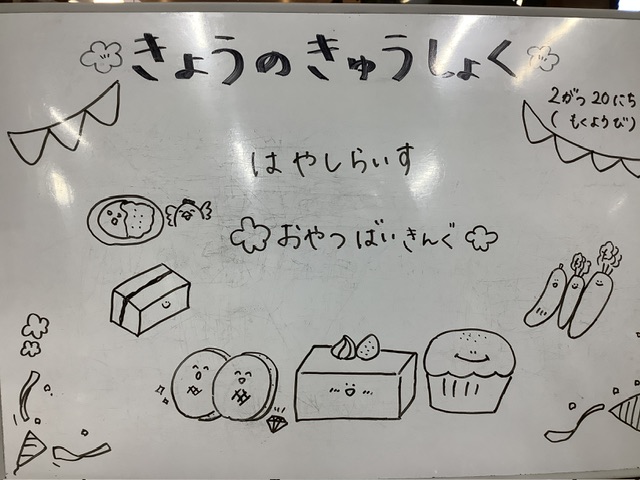 きょうのきゅうしょく
2がつ20にち
(もくようび)
はやしらいす
おやつばいきんぐ